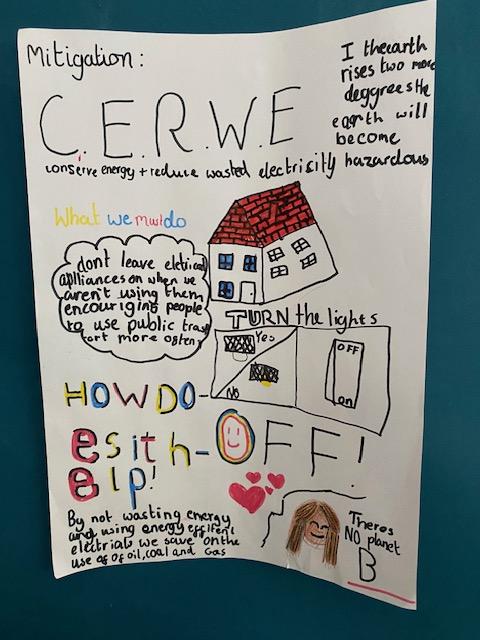 Mitigation:
I thearth
rises two more
deggrees the
earth will
become
hazardous
C.E.R.W.E
conserve energy + reduce wasted electrisity
What we must do
dont leave eletrical
aplliances on when we
aren't using them
encouriging people
to use public tras
port more often
TURN the lights
Yes
NO
OFF
on
HOW DO-
es it h-
elp!
OFF!
By not wasting energy
and using energy effifent
electrials we save on the
use of of oil, coal and Gas
Theres
NO planet
B